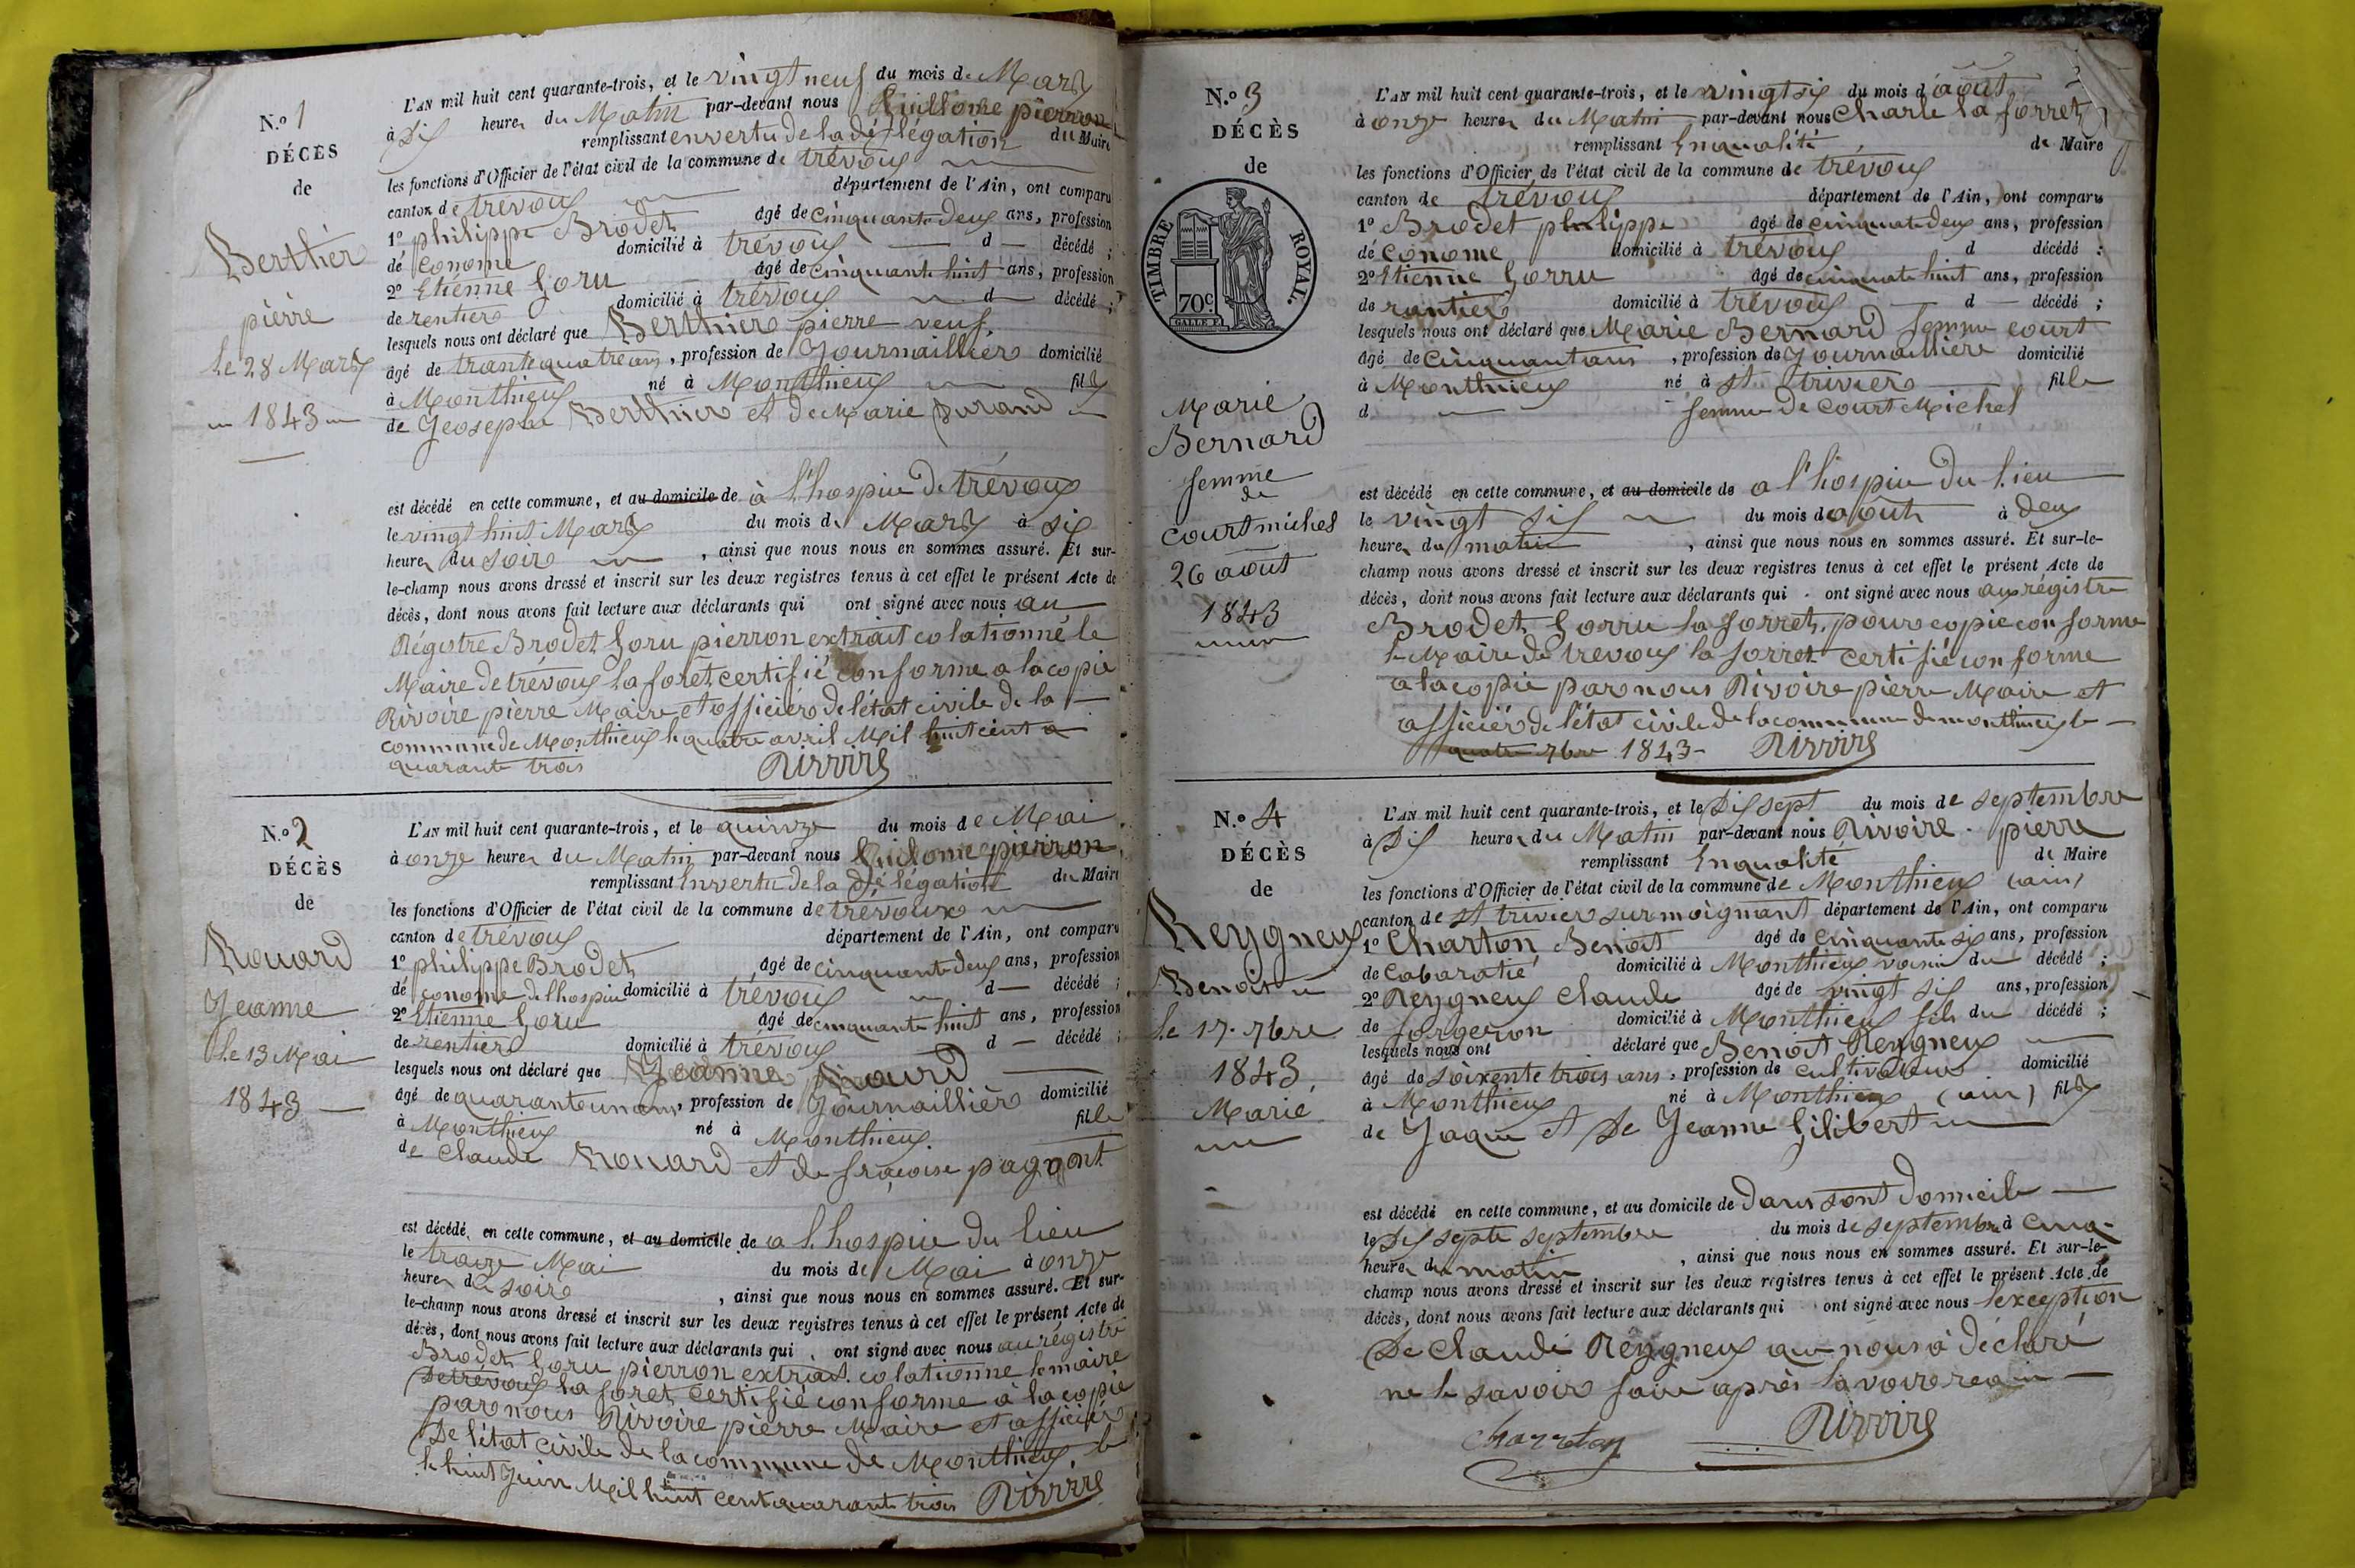 N.º 1
DÉCÈS
de
Berthier
pièrre
le 28 Mars
1843
L'AN mil huit cent quarante-trois, et le vingt neuf du mois de Mars
à Dix heures du Matin par-devant nous pierron
remplissant envertu de la délégation du Maire
les fonctions d'Officier de l'état civil de la commune de trévoux
canton de trévoux département de l'Ain, ont comparu
1º philippe Brodet âgé de cinquante deux ans, profession
dé conome domicilié à trévoux d — décédé ;
2º Etienne Goru âgé de cinquante huit ans, profession
de rentier domicilié à trévoux d décédé ;
lesquels nous ont déclaré que Berthier pierre veuf,
âgé de trante quatre ans, profession de Journaillier domicilié
à Monthieux né à Monthieux fils
de Geoseph Berthier et de Marie Durand
est décédé en cette commune, et au domicile de à l'hospice de trévoux
le vingt huit Mars du mois de Mars à six
heures du soir , ainsi que nous nous en sommes assuré. Et sur-
le-champ nous avons dressé et inscrit sur les deux registres tenus à cet effet le présent Acte de
décès, dont nous avons fait lecture aux déclarants qui ont signé avec nous au
Régistre Brodet Goru pierron extrait colationné le
Maire de trévoux la foret certifié conforme a la copie
Rivoire pièrre Maire et officier de l'état civile de la
commune de Monthieux le quatre avril Mil huit cent
quarante trois Rivoire
N.º 2
DÉCÈS
de
Rouard
Jeanne
le 13 Mai
1843
L'AN mil huit cent quarante-trois, et le quinze du mois de Mai
à onze heures du Matin par-devant nous pierron
remplissant Envertu de la délégation du Maire
les fonctions d'Officier de l'état civil de la commune de trévoux
canton de trévoux département de l'Ain, ont comparu
1º philippe Brodet âgé de cinquante deux ans, profession
dé conome de lhospice domicilié à trévoux d — décédé ;
2º Etienne Goru âgé de cinquante huit ans, profession
de rentier domicilié à trévoux d — décédé ;
lesquels nous ont déclaré que Jeanne Rouard
âgé de quarante un ans, profession de Journaillièr domicilié
à Monthieux né à Monthieux. fille
de Claude Rouard et de fraçoise pagnont
est décédé en cette commune, et au domicile de a lhospice du lieu
le traize Mai du mois de Mai à onze
heures de soire , ainsi que nous nous en sommes assuré. Et sur-
le-champ nous avons dressé et inscrit sur les deux registres tenus à cet effet le présent Acte de
décès, dont nous avons fait lecture aux déclarants qui ont signé avec nous au régistre
Brodet Goru pierron extrait colationne le maire
De trévoux la foret certifié conforme à la copie
par nous Rivoire pièrre Maire et officier
De létat civile de la commune de Monthieux, le
le huit Juin Mil huit cent quarante trois Rivoire
N.º 3
DÉCÈS
de
TIMBRE ROYAL.
70c.
Marie
Bernard
femme
de
court michel
26 août
1843
L'AN mil huit cent quarante-trois, et le vingt six du mois d'août
à onze heures du Matin par-devant nous Charle la forret
remplissant Enqualité de Maire
les fonctions d'Officier de l'état civil de la commune de trévoux
canton de trévoux département de l'Ain, ont comparu
1º Brodet philippe âgé de cinquate deux ans, profession
dé conome domicilié à trévoux d décédé ;
2º Etienne Gorru âgé de cinquate huit ans, profession
de rantier domicilié à trévoux d — décédé ;
lesquels nous ont déclaré que Marie Bernard femme court
âgé de cinquantans , profession de Journaillière domicilié
à Monthieux né à st. trivier fille
d femme de court Michel
est décédé en cette commune, et au domicile de a l'hospice du lieu
le vingt six du mois d'août à deux
heures du matin , ainsi que nous nous en sommes assuré. Et sur-le-
champ nous avons dressé et inscrit sur les deux registres tenus à cet effet le présent Acte de
décès, dont nous avons fait lecture aux déclarants qui ont signé avec nous aux régistre
Brodet Gorru la forret, pour copie conforme
le Maire de trevoux la forret certifié conforme
a la copie par nous Rivoire pierre Maire et
officièr de l'état civile de la commune de monthieux le
quatre 7bre 1843 - Rivoire
N.º 4
DÉCÈS
de
Reygneux
Benoit
le 17. 7bre
1843,
Marié
L'AN mil huit cent quarante-trois, et le Dix sept du mois de septembre
à Dix heures du Matin par-devant nous Rivoire pierre
remplissant Enqualité de Maire
les fonctions d'Officier de l'état civil de la commune de Monthieux (ain)
canton de st trivier sur moignant département de l'Ain, ont comparu
1º Charton, Benoit âgé de cinquante six ans, profession
de Cabaratié domicilié à Monthieux voisin du décédé ;
2º Reygneux Claude âgé de vingt six ans, profession
de forgeron domicilié à Monthieux fils du décédé ;
lesquels nous ont déclaré que Benoit Reygneux
âgé de soixente trois ans, profession de cultivateur domicilié
à Monthieux né à Monthieux (ain) fils
de Jaque et De Jeanne Gilibert
est décédé en cette commune, et au domicile de dans sont domicile
le Dix septe septembre du mois de septembre à cinq
heures du matin , ainsi que nous nous en sommes assuré. Et sur-le-
champ nous avons dressé et inscrit sur les deux registres tenus à cet effet le présent Acte de
décès, dont nous avons fait lecture aux déclarants qui ont signé avec nous lexception
De Claude Reygneux qui nous à déclaré
ne le savoir faire après lavoir requi
Charreton Rivoire